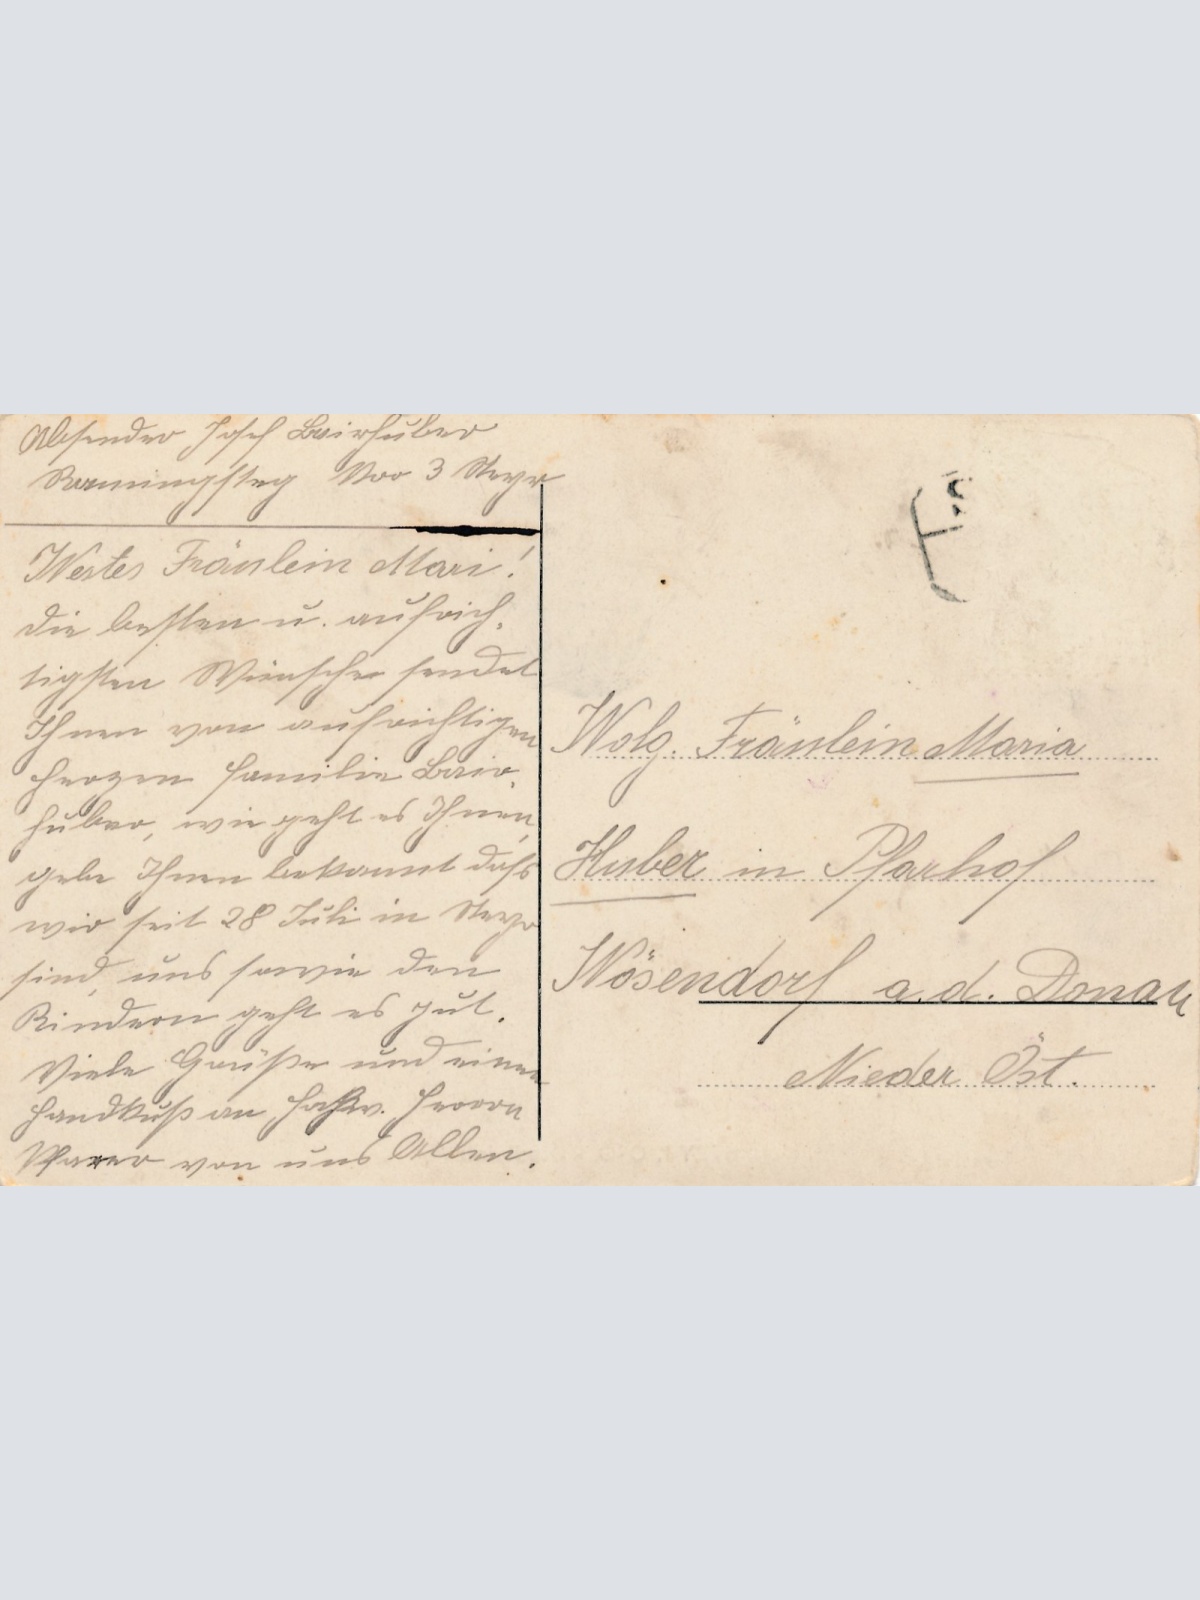 Absender Josef Bairhuber
Ramingsteg Nro 3 Steyr
Wertes Fräulein Mari!
Die besten u. aufrich-
tigsten Wünsche sendet
Ihnen von aufrichtigen
Herzen Familie Bair-
huber, wie geht es Ihnen,
gebe Ihnen bekannt daß
wir seit 28 Juli in Steyr
sind, uns sowie den
Kindern geht es gut.
Viele Grüße und einen
Handkuß an Hochw. Herrn
Pfarrer von uns Allen.
T
Wolg. Fräulein Maria
Huber in Pfarhof
Wösendorf a. d. Donau
Nieder Öst.